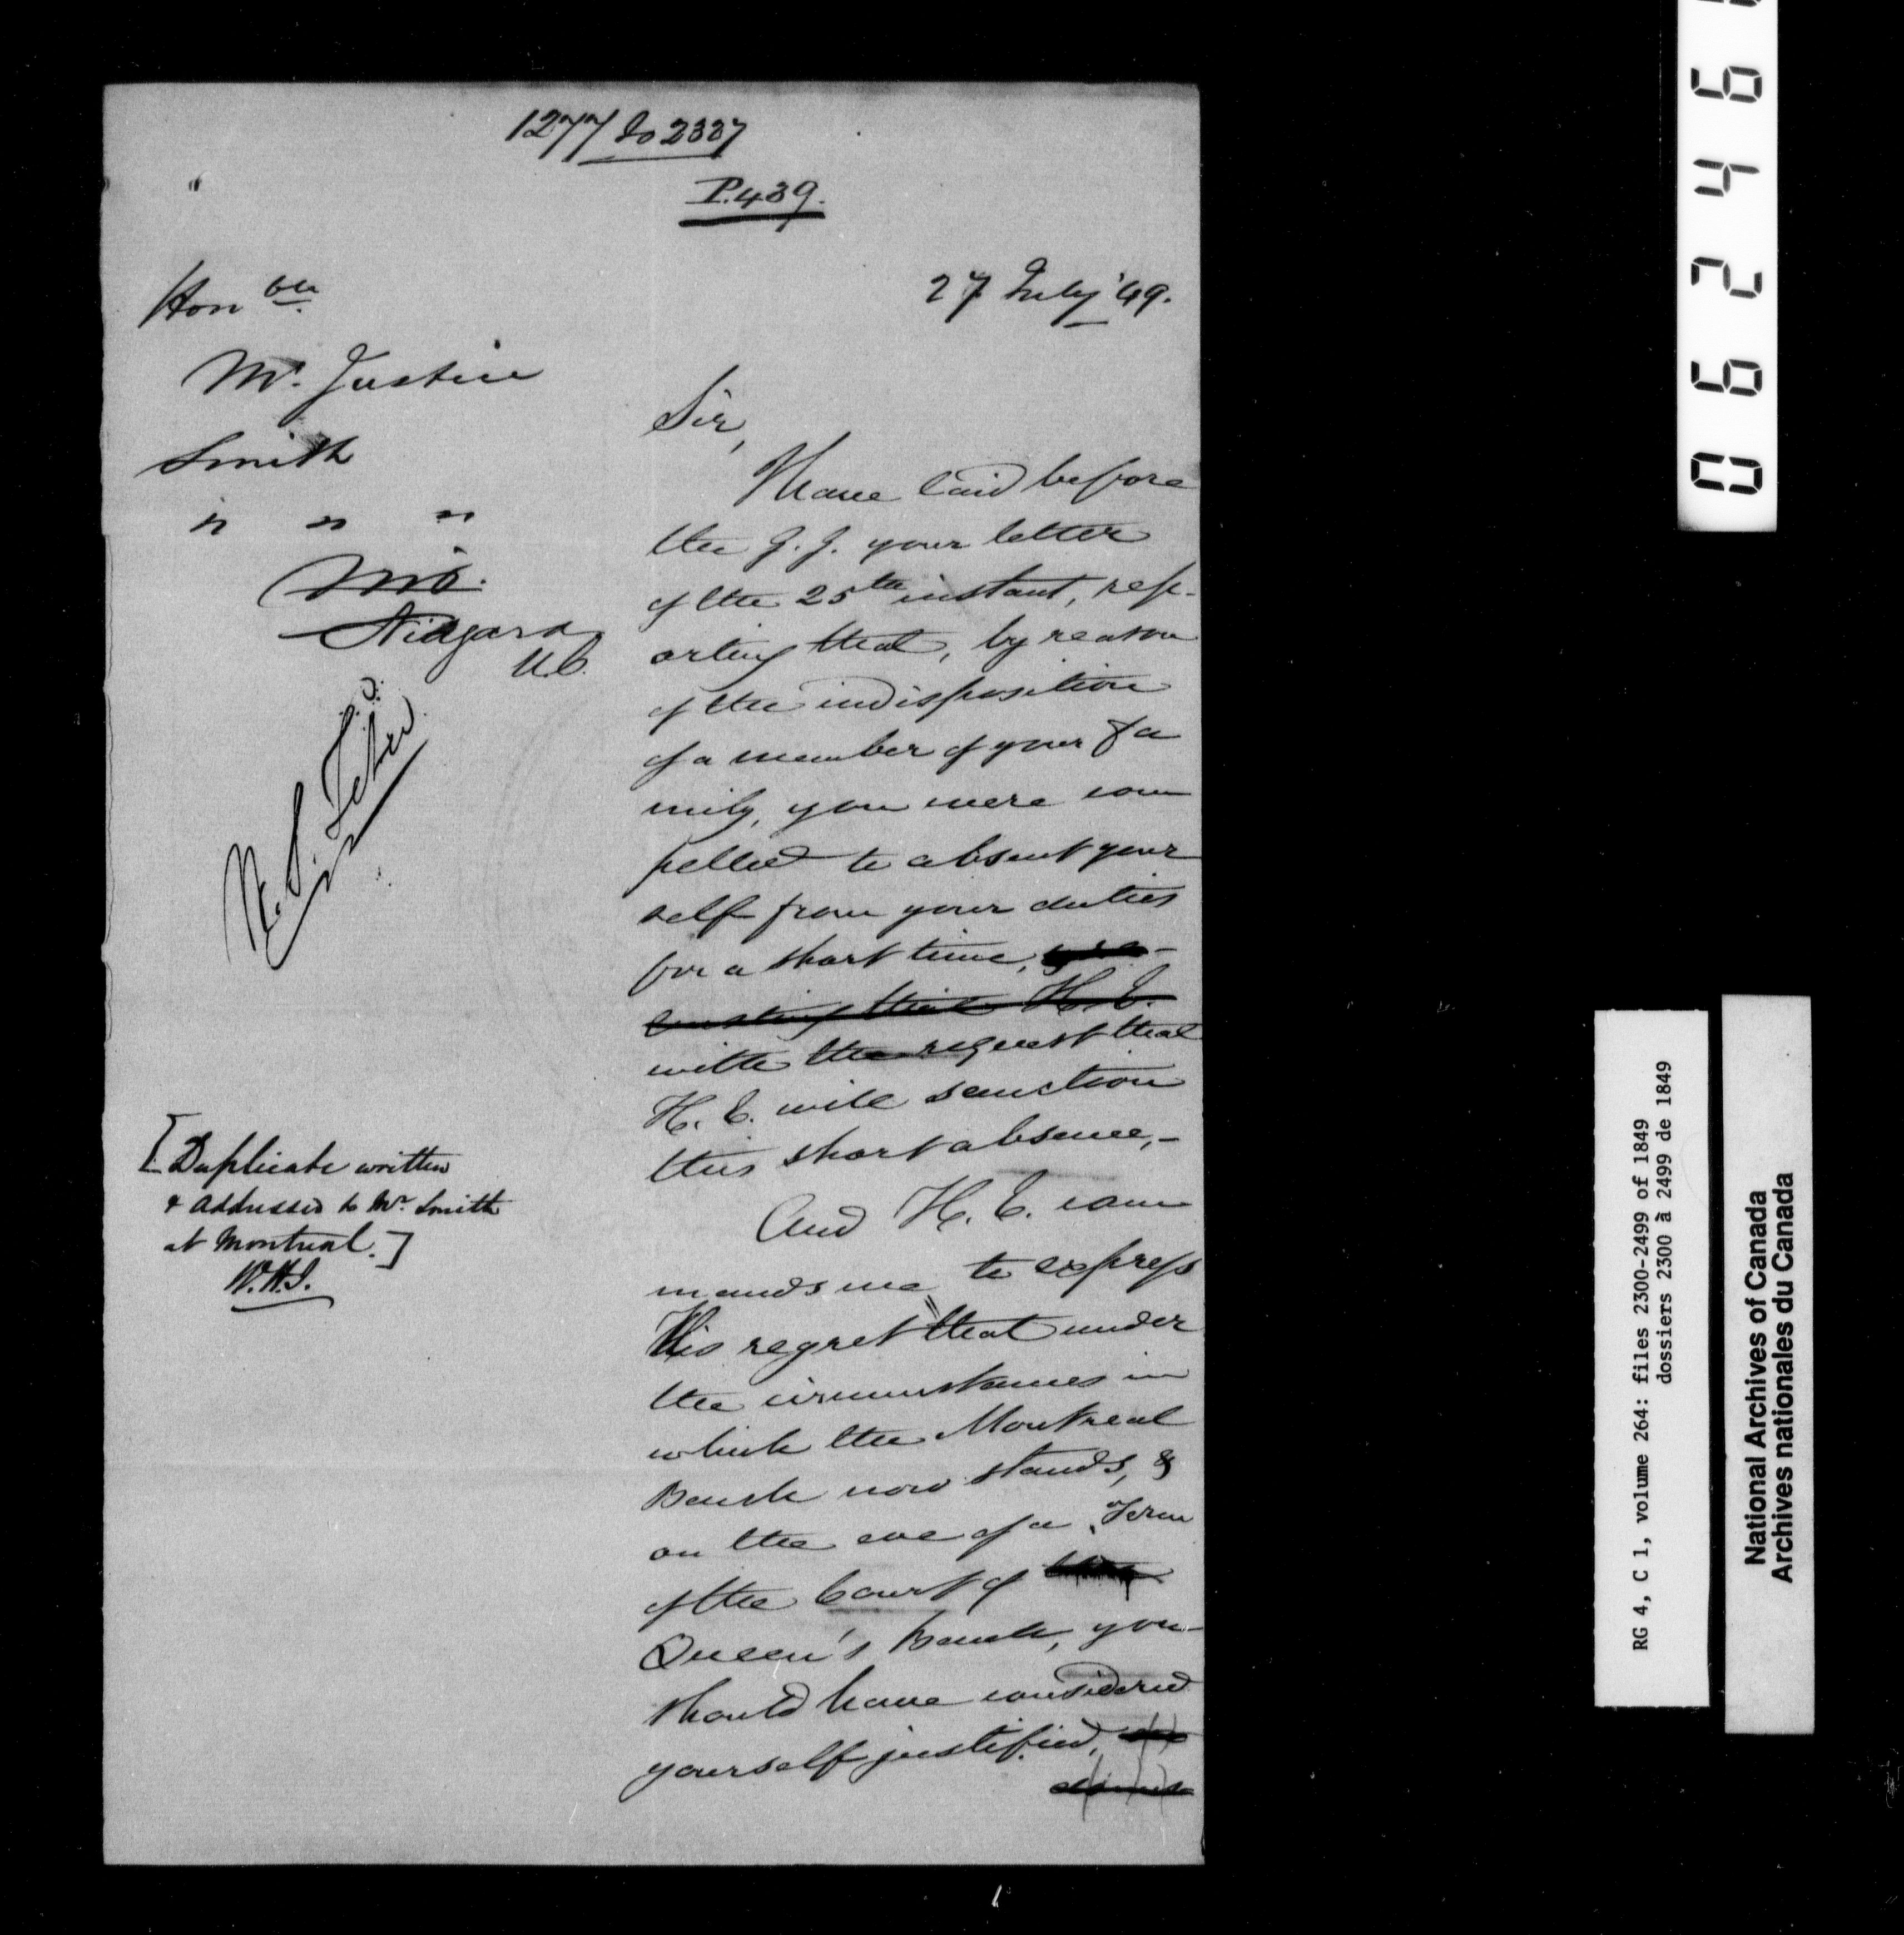 1277 to 2337
P. 439.
27 July '49.
Honble
Mr. Justice
Smith
" " "
Niagara
U.C.
[Duplicate written
& addressed to Mr. Smith
at Montreal.]
W.H.J.
Sir,
I have laid before
the G. G. your letter
of the 25th instant, rep-
orting that, by reason
of the indisposition
of a member of your fa
mily, you were com
pelled to absent your
self from your duties
for a short time,
that H. E.
with the request that
H. E. will sanction
this short absence,-
And H. E. com
mands me to express
His regret that under
the circumstances in
which the Montreal
Bench now stands, &
on the eve of a Term
of the Court of
Queen's Bench, you
should have considered
yourself justified,
0 6 2 4 6
RG 4, C 1, volume 264: files 2300-2499 of 1849
dossiers 2300 à 2499 de 1849
National Archives of Canada
Archives nationales du Canada